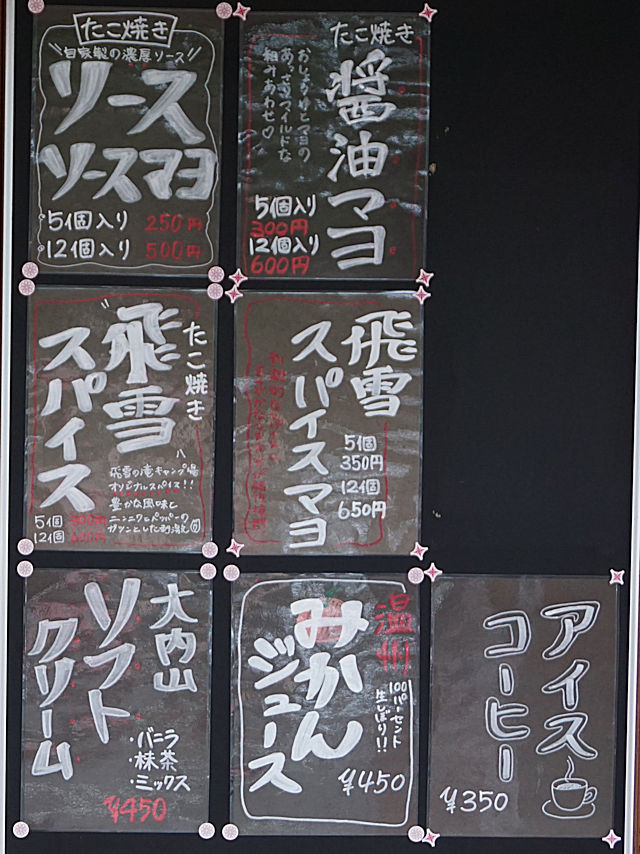 たこ焼き
自家製の濃厚ソース
ソース
ソースマヨ
5個入り 250円
12個入り 500円
たこ焼き
醤油マヨ
おしょうゆとマヨの
あっさりマイルドな
組みあわせ♡
5個入り
300円
12個入り
600円
たこ焼き
飛雪
スパイス
飛雪の滝キャンプ場
オリジナルスパイス!!
豊かな風味と
ニンニクとペッパーの
ガツンとした刺激
5個 300円
12個 600円
飛雪
スパイスマヨ
5個
350円
12個
650円
大内山
ソフト
クリーム
・バニラ
・抹茶
・ミックス
¥450
温州
みかん
ジュース
100パーセント
生しぼり!!
¥450
アイス
コーヒー
¥350